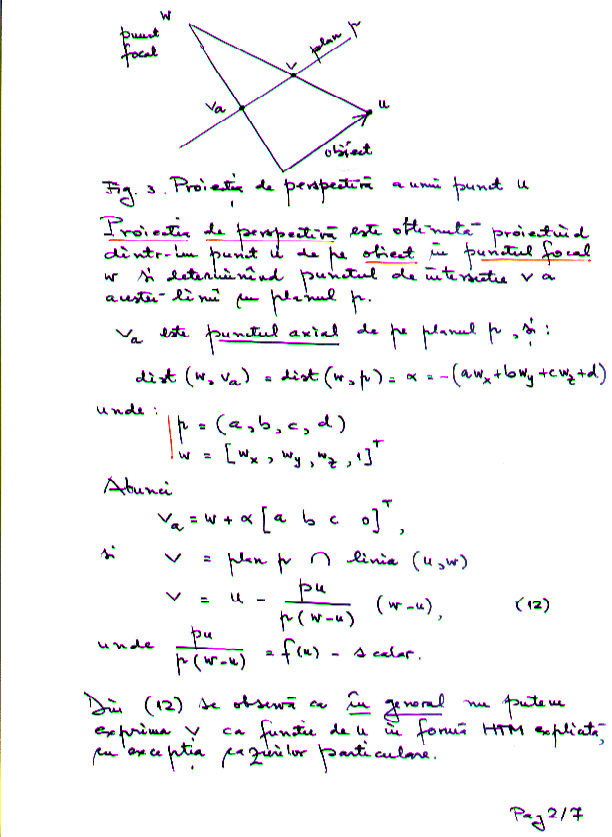 w
punct
focal
plan p
v
va
u
obiect
Fig. 3. Proiecția de perspectivă a unui punct u
Proiecția de perspectivă este obținută proiectînd
dintr-un punct u de pe obiect în punctul focal
w și determinînd punctul de intersecție v a
acestei linii cu planul p.
va este punctul axial de pe planul p, și :
dist (w, va) = dist (w, p) = α = -(awx+bwy+cwz+d)
unde :
p = (a, b, c, d)
w = [wx, wy, wz, 1]ᵀ
Atunci
va = w + α [a b c 0]ᵀ,
și v = plan p ∩ linia (u,w)
v = u - pu / p(w-u) (w-u), (12)
unde pu / p(w-u) = f(u) - scalar.
Din (12) se observă că în general nu putem
exprima v ca funcție de u în formă HTM explicată,
cu excepția cazurilor particulare.
Pag 2/7